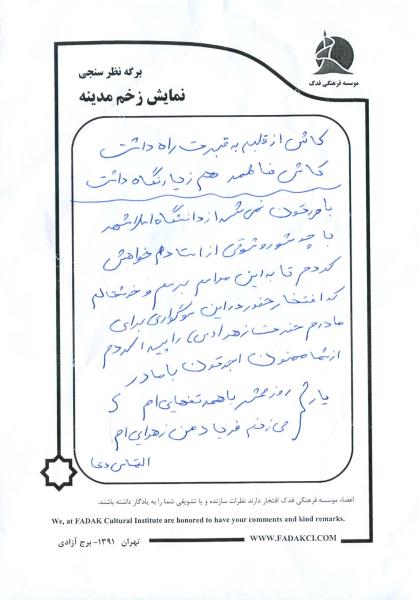 موسسه فرهنگی فدک
برگه نظر سنجی
نمایش زخم مدینه
کاش از قلبم به قبرت راه داشت
کاش فاطمه هم زیارتگاه داشت
باورتون نمی‌شه از دانشگاه اسلامشهر
با چه شور و شوقی از استادم خواهش
کردم تا به این مراسم برسم و خوشحالم
که افتخار حضور در این سوگواری برای
مادرم حضرت زهرا (س) را پیدا کردم
از شما ممنون اجرتون با مادر
یار روز محشر با همه تنهایی‌ام
می‌زنم فریاد من زهرایی‌ام
التماس دعا
اعضاء موسسه فرهنگی فدک افتخار دارند نظرات سازنده و یا تشویقی شما را به یادگار داشته باشند.
We, at FADAK Cultural Institute are honored to have your comments and kind remarks.
تهران ۱۳۹۱- برج آزادی
WWW.FADAKCI.COM